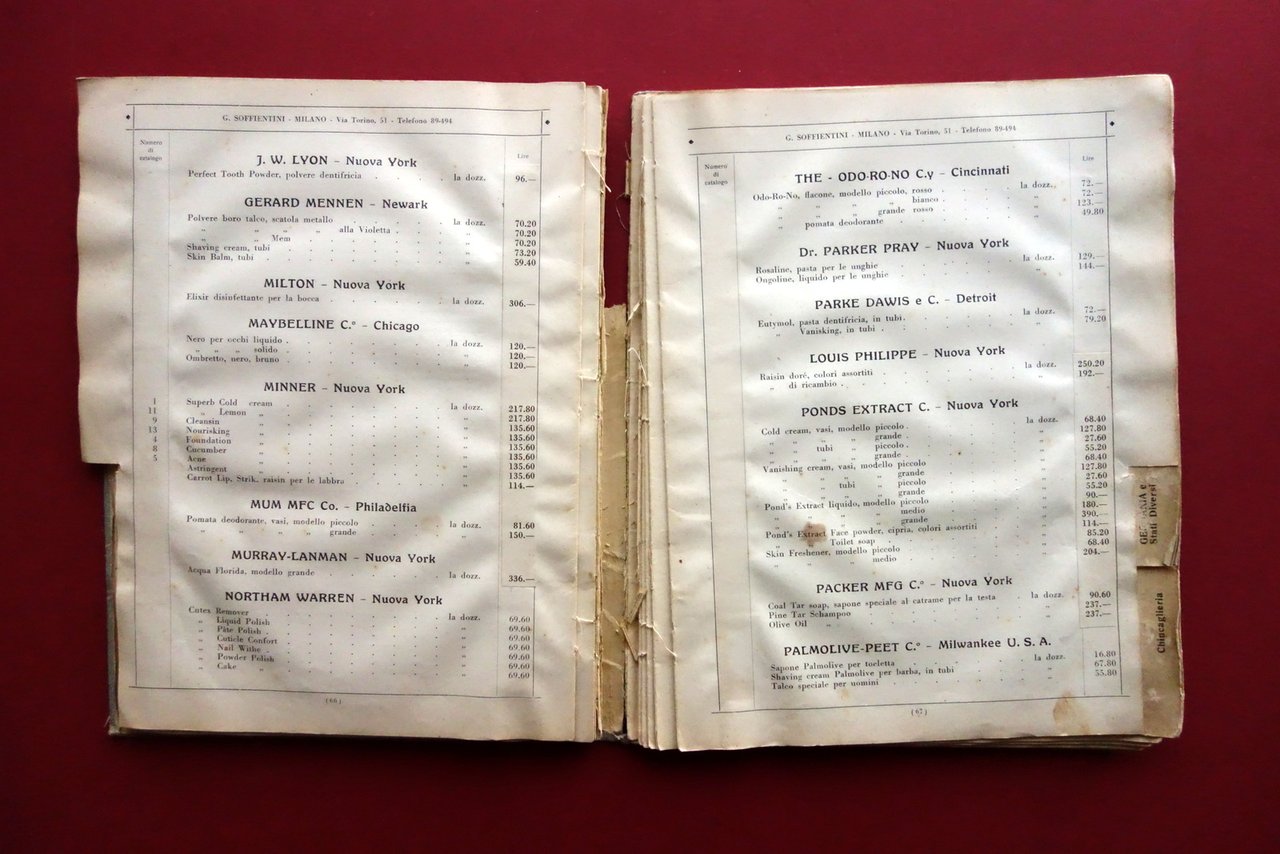 G. SOFFIENTINI - MILANO - Via Torino, 51 - Telefono 89-494
Numero di catalogo
Lire
J. W. LYON - Nuova York
Perfect Tooth Powder, polvere dentifricia . . . la dozz. 96.—
GERARD MENNEN - Newark
Polvere boro talco, scatola metallo . . . la dozz. 70.20
„ „ „ „ alla Violetta . . . „ 70.20
„ „ Mem . . . „ 70.20
Shaving cream, tubi . . . „ 73.20
Skin Balm, tubi . . . „ 59.40
MILTON - Nuova York
Elixir disinfettante per la bocca . . . la dozz. 306.—
MAYBELLINE C.º - Chicago
Nero per occhi liquido . . . la dozz. 120.—
„ „ „ solido . . . „ 120.—
Ombretto, nero, bruno . . . „ 120.—
MINNER - Nuova York
1 Superb Cold cream . . . la dozz. 217.80
11 „ Lemon „ . . . „ 217.80
9 Cleansin „ . . . „ 135.60
13 Nourisking „ . . . „ 135.60
4 Foundation „ . . . „ 135.60
8 Cucumber „ . . . „ 135.60
5 Acne „ . . . „ 135.60
Astringent „ . . . „ 135.60
Carrot Lip. Strik, raisin per le labbra . . . „ 114.—
MUM MFC Co. - Philadelfia
Pomata deodorante, vasi, modello piccolo . . . la dozz. 81.60
„ „ „ „ grande . . . „ 150.—
MURRAY-LANMAN - Nuova York
Acqua Florida, modello grande . . . la dozz. 336.—
NORTHAM WARREN - Nuova York
Cutex Remover . . . la dozz. 69.60
„ Liquid Polish . . . „ 69.60
„ Pâte Polish . . . „ 69.60
„ Cuticle Confort . . . „ 69.60
„ Nail Withe . . . „ 69.60
„ Powder Polish . . . „ 69.60
„ Cake „ . . . „ 69.60
(66)
G. SOFFIENTINI - MILANO - Via Torino, 51 - Telefono 89-494
Numero di catalogo
Lire
THE - ODO-RO-NO C.y - Cincinnati
Odo-Ro-No, flacone, modello piccolo, rosso . . . la dozz. 72.—
„ „ „ „ bianco . . . „ 72.—
„ „ „ grande rosso . . . „ 123.—
„ pomata deodorante . . . „ 49.80
Dr. PARKER PRAY - Nuova York
Rosaline, pasta per le unghie . . . la dozz. 129.—
Ongoline, liquido per le unghie . . . „ 144.—
PARKE DAWIS e C. - Detroit
Eutymol, pasta dentifricia, in tubi . . . la dozz. 72.—
„ Vanisking, in tubi . . . „ 79.20
LOUIS PHILIPPE - Nuova York
Raisin doré, colori assortiti . . . la dozz. 250.20
„ di ricambio . . . „ 192.—
PONDS EXTRACT C. - Nuova York
Cold cream, vasi, modello piccolo . . . la dozz. 68.40
„ „ „ „ grande . . . „ 127.80
„ „ tubi „ piccolo . . . „ 27.60
„ „ „ „ grande . . . „ 55.20
Vanishing cream, vasi, modello piccolo . . . „ 68.40
„ „ „ „ grande . . . „ 127.80
„ „ tubi „ piccolo . . . „ 27.60
„ „ „ „ grande . . . „ 55.20
Pond's Extract liquido, modello piccolo . . . „ 90.—
„ „ „ „ medio . . . „ 180.—
„ „ „ „ grande . . . „ 390.—
Pond's Extract Face powder, cipria, colori assortiti . . . „ 114.—
„ „ Toilet soap . . . „ 85.20
Skin Freshener, modello piccolo . . . „ 68.40
„ „ „ medio . . . „ 204.—
PACKER MFG C.º - Nuova York
Coal Tar soap, sapone speciale al catrame per la testa . la dozz. 90.60
Pine Tar Schampoo . . . „ 237.—
Olive Oil „ . . . „ 237.—
PALMOLIVE-PEET C.º - Milwankee U. S. A.
Sapone Palmolive per toeletta . . . la dozz. 16.80
Shaving cream Palmolive per barba, in tubi . . . „ 67.80
Talco speciale per uomini . . . „ 55.80
(67)
Stati Diversi
Chincaglieria